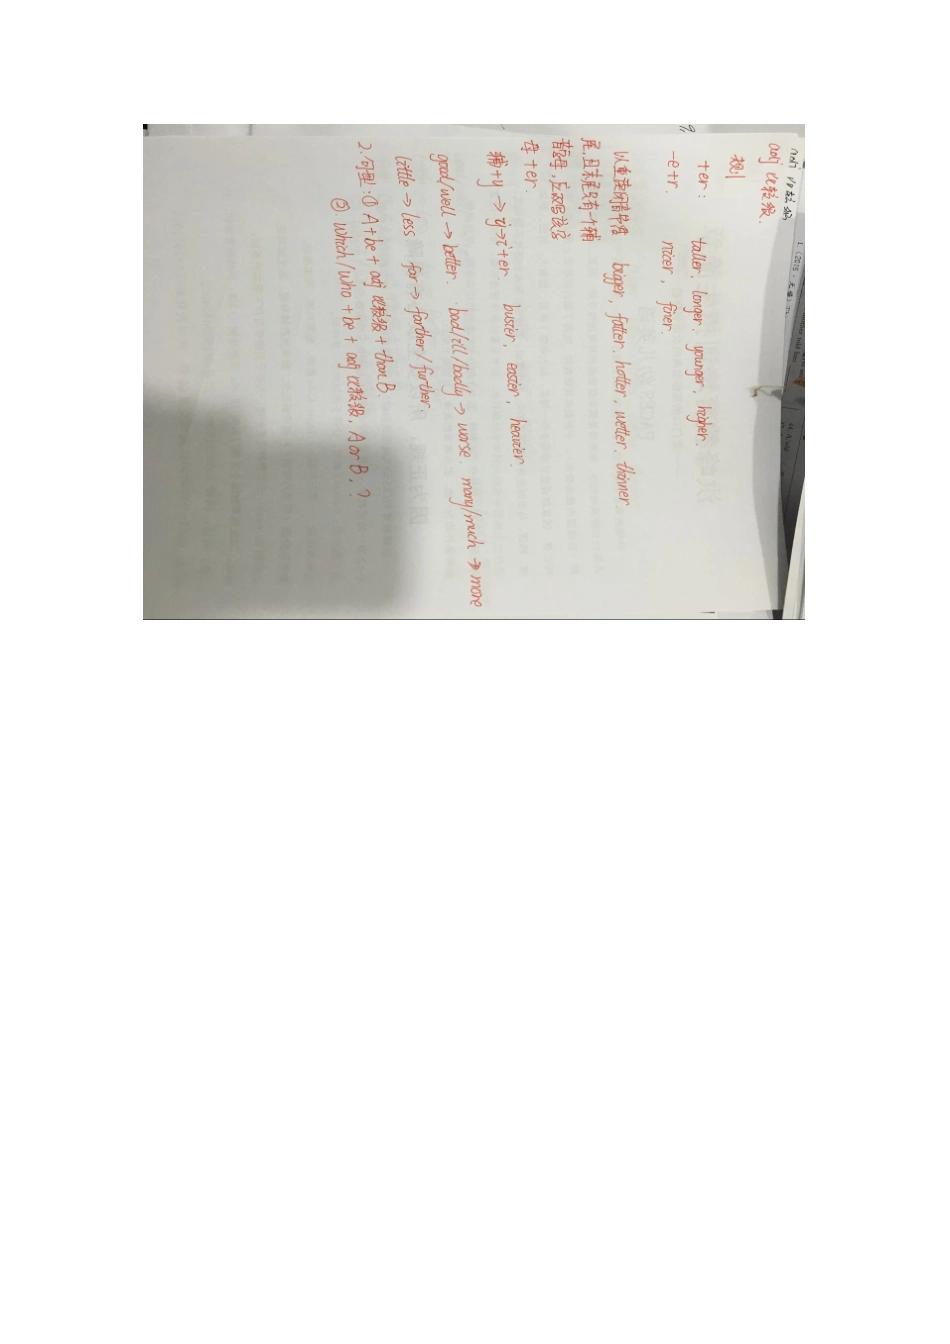 adj 比较级.
规则
+er: taller. longer. younger, higher.
-e+r. nicer, finer.
以重读闭音节结 bigger, fatter. hotter, wetter. thinner
尾,且末尾只有一个辅
音字母,应双写该字
母+er.
辅+y → y→i+er. busier, easier, heavier.
good/well → better. bad/ill/badly → worse. many/much → more
little → less far → farther/further.
2.句型:① A+be+adj 比较级+than B.
② which/who+be+adj 比较级, A or B,?